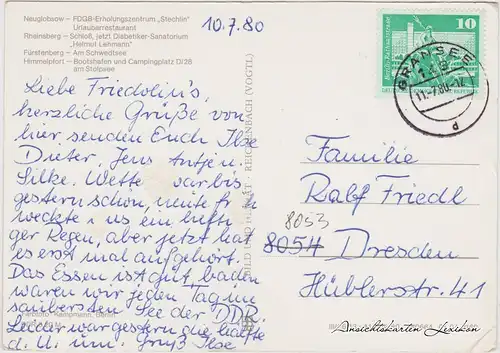 Neuglobsow – FDGB-Erholungszentrum „Stechlin“
Urlauberrestaurant
Rheinsberg – Schloß, jetzt Diabetiker-Sanatorium
„Helmut Lehmann“
Fürstenberg – Am Schwedtsee
Himmelpfort – Bootshafen und Campingplatz D/28
am Stolpsee
10.7.80
10
GRANSEE
d
Liebe Friedolin's,
herzliche Grüße von
hier senden Euch Ilse
Dieter, Jens Antjeu.
Silke. Wette war bis
gestern schön, heute früh
weckte uns ein
ger Regen, aber jetzt hat
es erst mal aufgehört.
Das Essen ist gut, baden
waren wir jeden Tag im
saubersten See der DDR
Leider war gestern die Hälfte
d. U. um. Gruß Ilse
BILD UND HEIMAT REICHENBACH (VOGTL)
Familie
Ralf Friedl
8053
8054 Dresden
Hüblerstr. 41
Ansichtskarten Lexikon